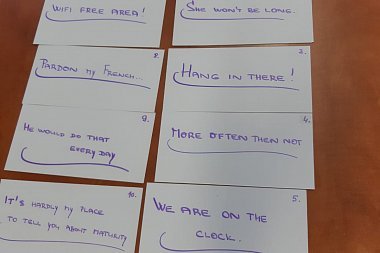 WIFI FREE AREA!
SHE WON'T BE LONG.
8.
PARDON MY FRENCH...
3.
HANG IN THERE!
9.
HE WOULD DO THAT
EVERY DAY
4.
MORE OFTEN THEN NOT
10.
IT'S HARDLY MY PLACE
TO TELL YOU ABOUT MATURITY
5.
WE ARE ON THE
CLOCK.